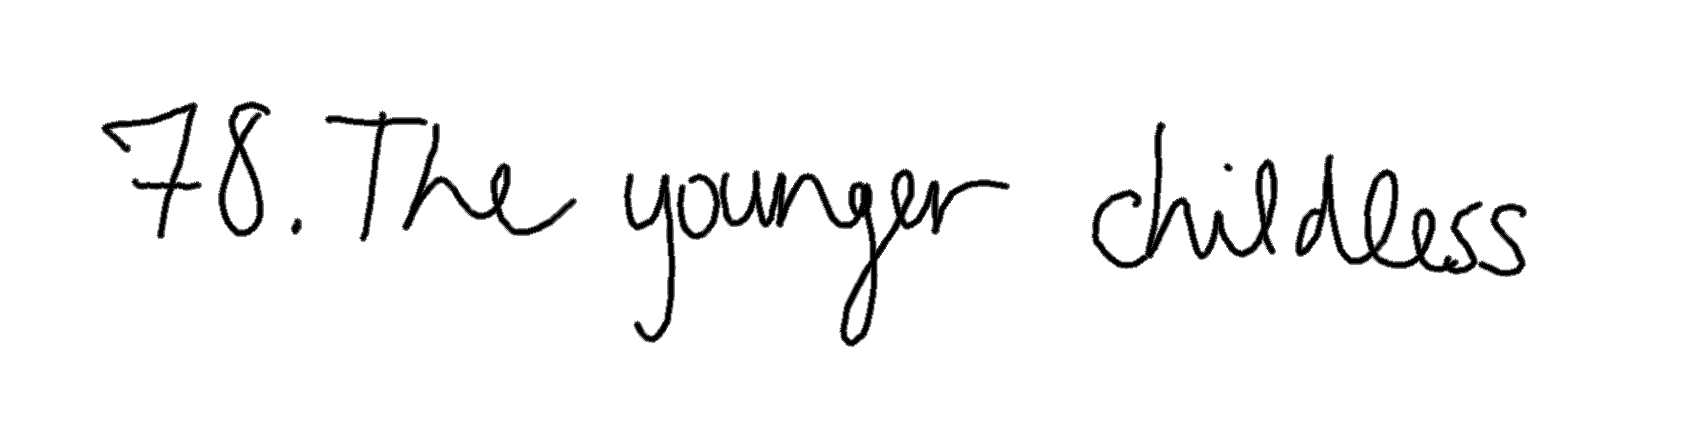 78. The younger childless